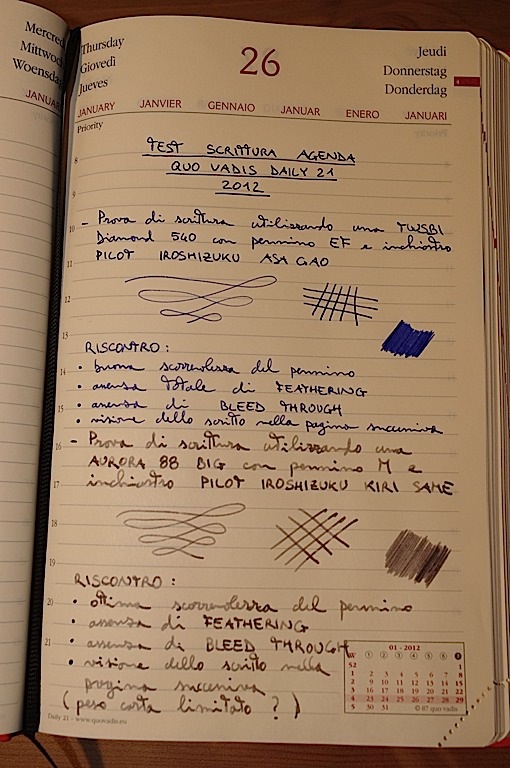 Mercred
Mittwoc
Woensda
JANUAR
Thursday
Giovedì
Jueves
26
Jeudi
Donnerstag
Donderdag
JANUARY JANVIER GENNAIO JANUAR ENERO JANUARI
Priority
8
TEST SCRITTURA AGENDA
QUO VADIS DAILY 21
9
2012
10
- Prova di scrittura utilizzando una TWSBI
Diamond 540 con pennino EF e inchiostro
11
PILOT IROSHIZUKU ASA GAO
12
13
RISCONTRO:
14
• buona scorrevolezza del pennino
• assenza totale di FEATHERING
15
• assenza di BLEED THROUGH
• visione dello scritto nella pagina successiva
16
- Prova di scrittura utilizzando una
AURORA 88 BIG con pennino M e
17
inchiostro PILOT IROSHIZUKU KIRI SAME
18
19
RISCONTRO:
20
• ottima scorrevolezza del pennino
• assenza di FEATHERING
21
• assenza di BLEED THROUGH
• visione dello scritto nella
pagina successiva
(peso carta limitato ?)
01 - 2012
W 1 2 3 4 5 6 7
52 1
1 2 3 4 5 6 7 8
2 9 10 11 12 13 14 15
3 16 17 18 19 20 21 22
4 23 24 25 26 27 28 29
5 30 31
© 87 quo vadis
Daily 21 - www.quovadis.eu